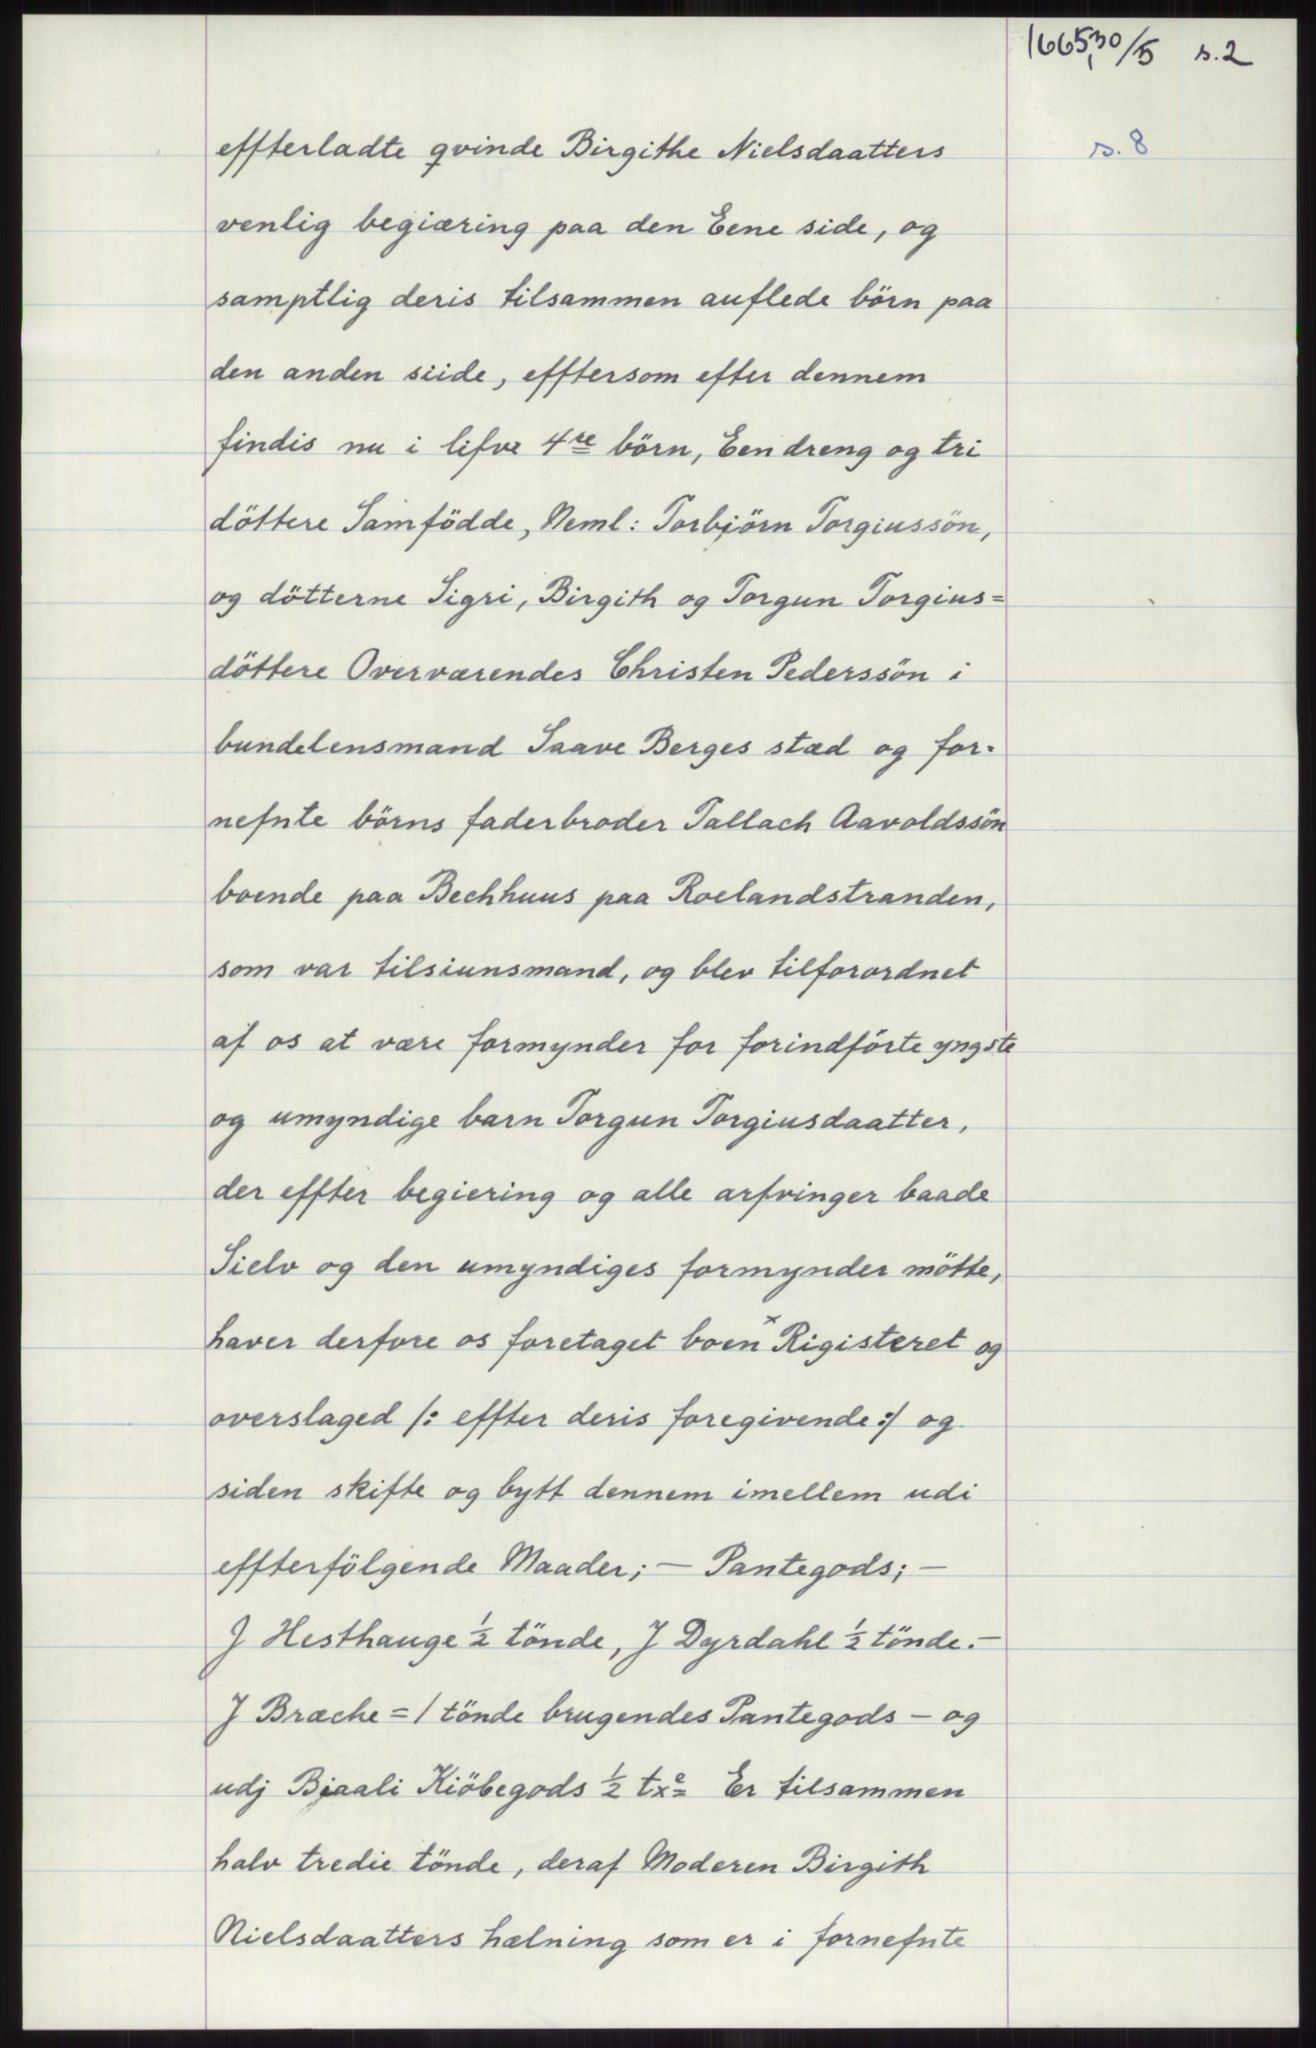 1665,30/5 s.2
s. 8
effterladte qvinde Birgithe Nielsdaatters
venlig begiæring paa den Eene side, og
samptlig deris tilsammen auflede börn paa
den anden siide, efftersom efter dennem
findis nu i lifve 4re börn, Een dreng og tri
döttere Samfödde, Neml: Torbjörn Torgiussön,
og dötterne Sigri, Birgith og Torgun Torgius=
döttere Overværendes Christen Pederssön i
bundelensmand Saave Berges stæd og for=
nefnte börns faderbroder Tallach Aavoldssön
boende paa Bechhuus paa Roelandstranden,
som var tilsiunsmand, og blev tilforordnet
af os at være formynder for forindförte yngste
og umyndige barn Torgun Torgiusdaatter,
der effter begiering og alle arfvinger baade
Sielv og den umyndiges formynder mötte,
haver derfore os foretaget boen x Rigisteret og
overslaged /: effter deris foregivende :/ og
siden skifte og bytt dennem imellem udi
effterfölgende Maader; — Pantegods; —
J Hesthauge ½ tönde, J Dyrdahl ½ tönde. —
J Bræche = 1 tönde brugendes Pantegods — og
udj Bjaali Kiöbegods ½ txe Er tilsammen
halv tredie tönde, deraf Moderen Birgith
Nielsdaatters hælning som er i fornefnte